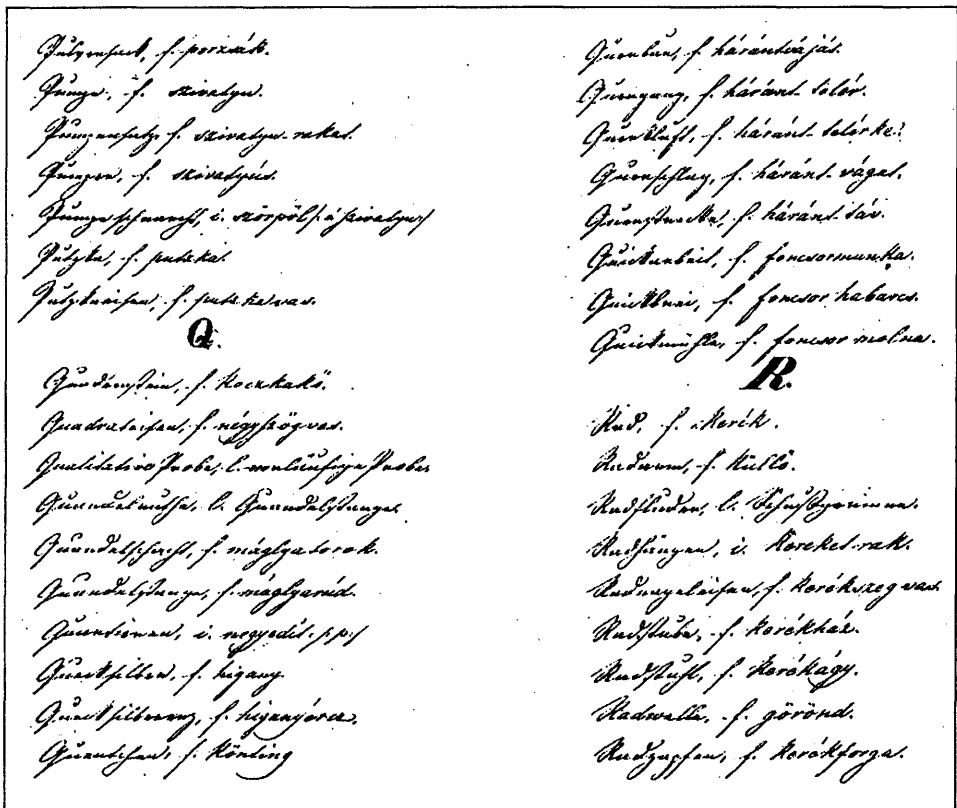 Pulversack, f. porzsák.
Pumpe, f. szivatyu.
Pumpensatz, f. szivatyu-rakat.
Pumpen, f. szivatyúz.
Pumpe schnarcht, i. szörpöl /: a szivatyu :/
Putzka, f. putzka.
Putzkeisen, f. putzkavas.
Q.
Quaderstein, f. koczkakő.
Quadrateisen, f. négyszögvas.
Qualitative Probe, l. vorläufige Probe.
Quandelruthe, l. Quandelstange.
Quandelschacht, f. máglyatorok.
Quandelstange, f. máglyarúd.
Quartieren, i. negyedít. /: p:/
Quecksilber, f. higany.
Quecksilbererz, f. higanyércz.
Quentchen, f. könting
Querbau, f. hárántvájás.
Quergang, f. háránt-telér.
Querkluft, f. háránt-telérke.
Querschlag, f. háránt-vágat.
Querstrecke, f. háránt-táv.
Quickarbeit, f. foncsormunka.
Quickbrei, f. foncsor habarcs.
Quickmühle, f. foncsor malna.
R.
Rad, f. kerék.
Radarm, f. küllő.
Radfluder, l. Schußgerinne.
Radhängen, i. kereket-rak.
Radnageleisen, f. kerékszeg vas.
Radstube, f. kerékház.
Radstuhl, f. kerékágy.
Radwelle, f. görönd.
Radzapfen, f. kerékforga.